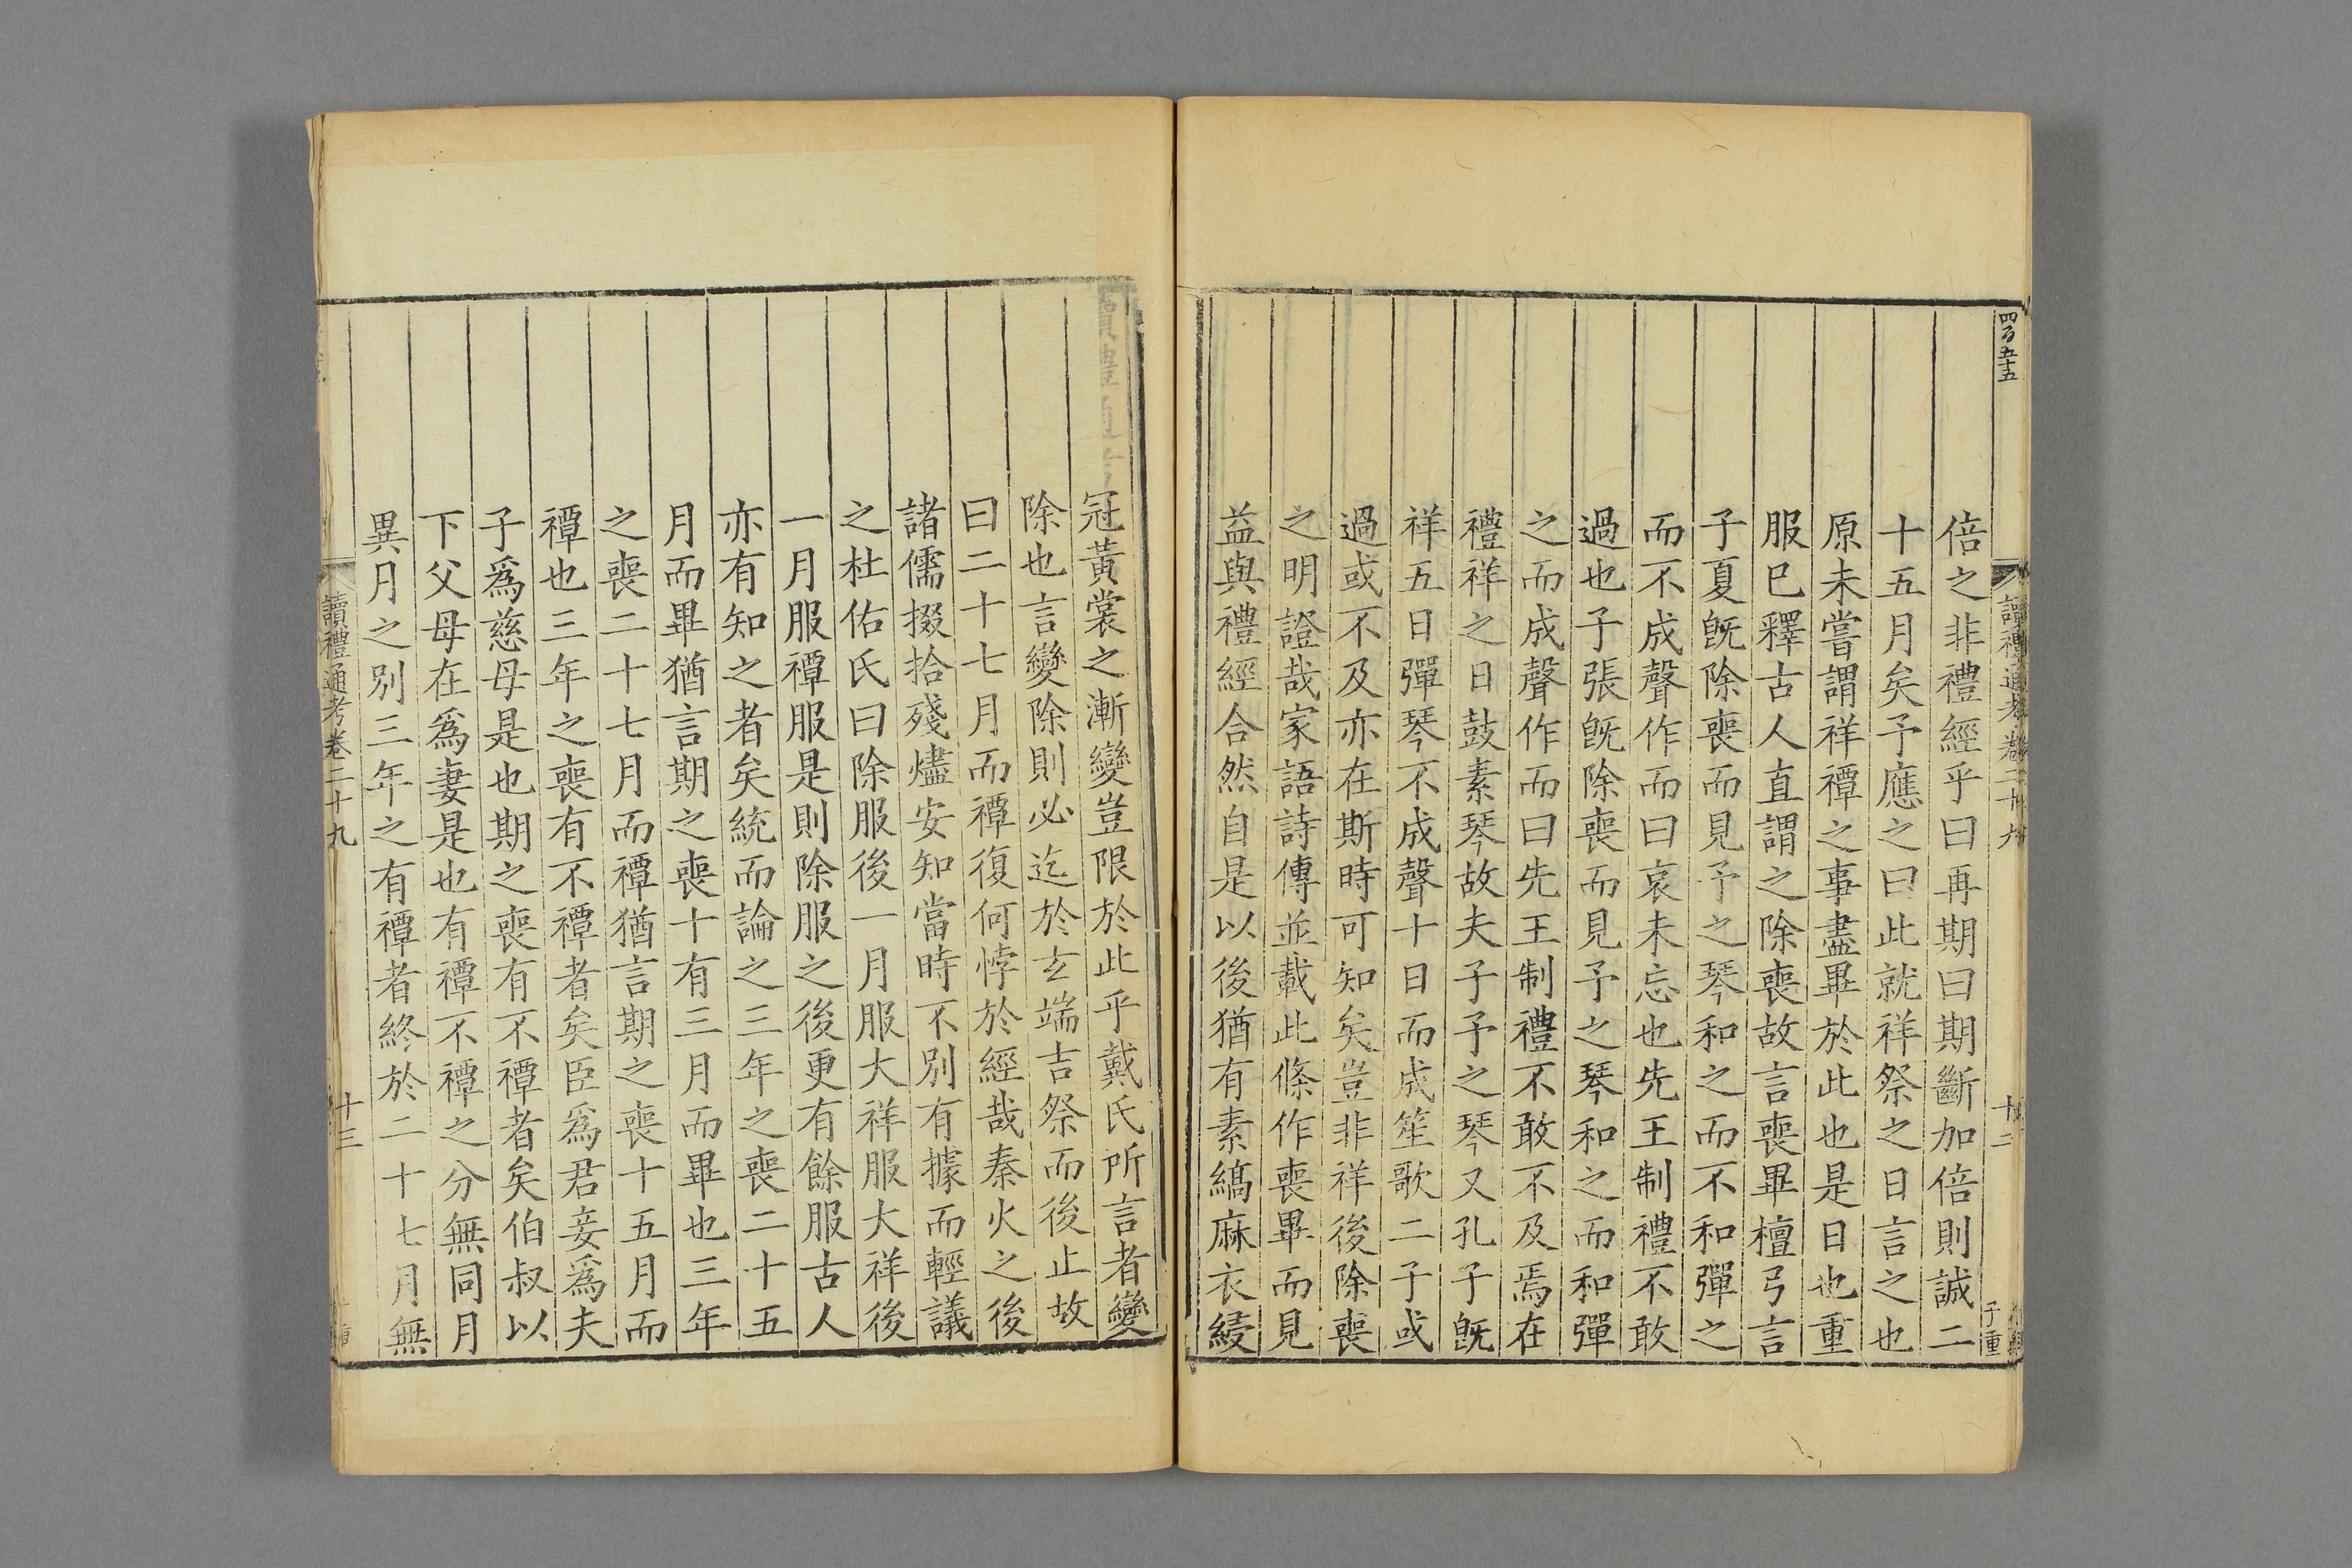 四百五十五
讀禮通考卷二十九
十二
子重
倍之非禮經乎曰再期曰期斷加倍則誠二
十五月矣予應之曰此就祥祭之日言之也
原未嘗謂祥禫之事盡畢於此也是日也重
服巳釋古人直謂之除喪故言喪畢檀弓言
子夏旣除喪而見予之琴和之而不和彈之
而不成聲作而曰哀未忘也先王制禮不敢
過也子張旣除喪而見予之琴和之而和彈
之而成聲作而曰先王制禮不敢不及焉在
禮祥之日鼓素琴故夫子予之琴又孔子旣
祥五日彈琴不成聲十日而成笙歌二子或
過或不及亦在斯時可知矣豈非祥後除喪
之明證哉家語詩傳並載此條作喪畢而見
益與禮經合然自是以後猶有素縞麻衣綅
冠黃裳之漸變豈限於此乎戴氏所言者變
除也言變除則必迄於玄端吉祭而後止故
曰二十七月而禫復何悖於經哉秦火之後
諸儒掇拾殘燼安知當時不別有據而輕議
之杜佑氏曰除服後一月服大祥服大祥後
一月服禫服是則除服之後更有餘服古人
亦有知之者矣統而論之三年之喪二十五
月而畢猶言期之喪十有三月而畢也三年
之喪二十七月而禫猶言期之喪十五月而
禫也三年之喪有不禫者矣臣爲君妾爲夫
子爲慈母是也期之喪有不禫者矣伯叔以
下父母在爲妻是也有禫不禫之分無同月
異月之別三年之有禫者終於二十七月無
讀禮通考卷二十九
十三